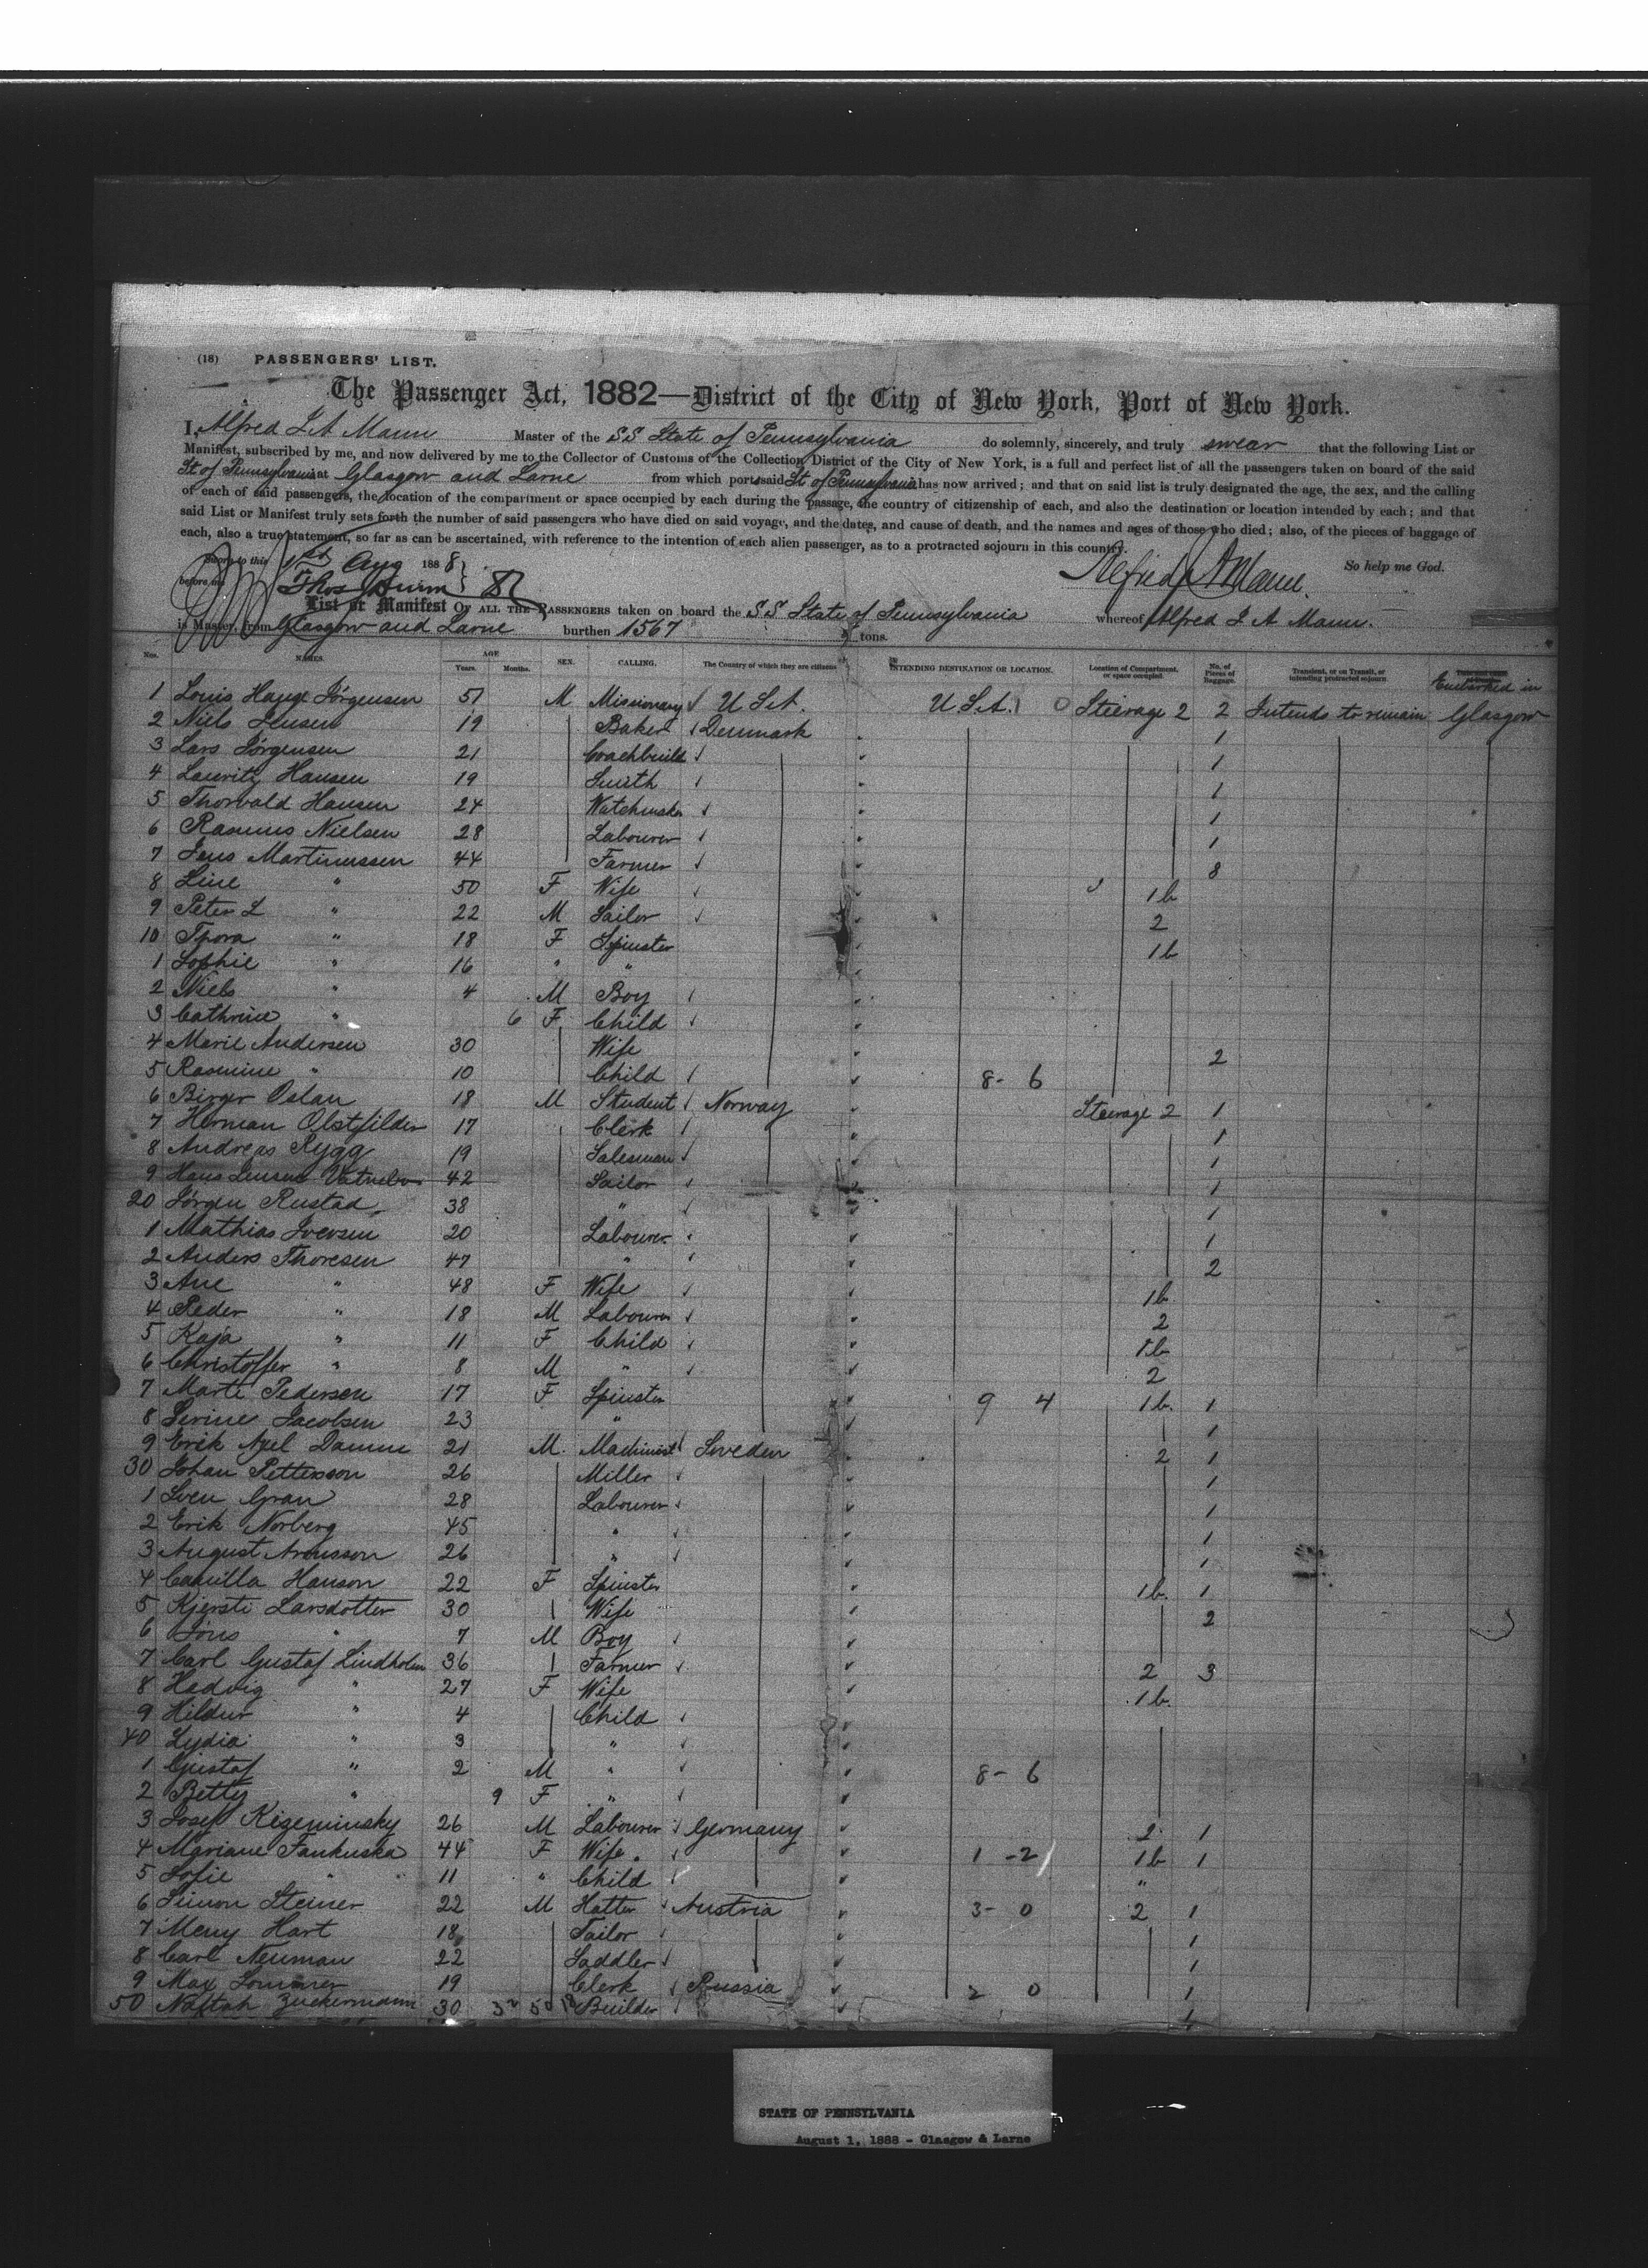 (18) PASSENGERS' LIST.
The Passenger Act, 1882—District of the City of New York, Port of New York.
I, Alfred J A Mann Master of the SS State of Pennsylvania do solemnly, sincerely, and truly swear that the following List or
Manifest, subscribed by me, and now delivered by me to the Collector of Customs of the Collection District of the City of New York, is a full and perfect list of all the passengers taken on board of the said
St of Pennsylvania at Glasgow and Larne from which ports said St of Pennsylvania has now arrived; and that on said list is truly designated the age, the sex, and the calling
of each of said passengers, the location of the compartment or space occupied by each during the passage, the country of citizenship of each, and also the destination or location intended by each; and that
said List or Manifest truly sets forth the number of said passengers who have died on said voyage, and the dates, and cause of death, and the names and ages of those who died; also, of the pieces of baggage of
each, also a true statement, so far as can be ascertained, with reference to the intention of each alien passenger, as to a protracted sojourn in this country.
Sworn to this 1st Aug 1888 So help me God.
before me Thos Alfred J A Mann.
List or Manifest OF ALL THE PASSENGERS taken on board the SS State of Pennsylvania whereof Alfred J A Mann.
is Master, from Glasgow and Larne burthen 1567 tons.
Nos. NAMES. AGE Years. Months. SEX. CALLING. The Country of which they are citizens INTENDING DESTINATION OR LOCATION. Location of Compartment, or space occupied. No. of Pieces of Baggage. Transient, or on Transit, or intending protracted sojourn Embarked in
1 Louis Hauge Jörgensen 51 M Missionary U.S.A. U.S.A. 0 Steerage 2 2 Intends to remain Glasgow
2 Niels Jensen 19 Baker Denmark 1
3 Lars Jörgensen 21 Coachbuild 1
4 Lauritz Hansen 19 Smith 1
5 Thorvald Hansen 24 Watchmaker 1
6 Rasmus Nielsen 28 Labourer 1
7 Jens Martinussen 44 Farmer 8
8 Line " 50 F Wife 1b
9 Peter L " 22 M Sailor 2
10 Thora " 18 F Spinster 1b
1 Sophie " 16 " "
2 Niels " 4 M Boy
3 Cathrine " 6 F Child
4 Marie Andersen 30 Wife 2
5 Rasmine " 10 Child 8- 6
6 Birger Oslan 18 M Student Norway Steerage 2 1
7 Herman Obstfelder 17 Clerk 1
8 Andreas Rygg 19 Salesman 1
9 Hans Jensen 42 Sailor 1
20 Jörgen Rustad 38 " 1
1 Mathias Iversen 20 Labourer 1
2 Anders Thoresen 47 " 2
3 Ane " 48 F Wife 1b
4 Peder " 18 M Labourer 2
5 Kaja " 11 F Child 1b
6 Christoffer " 8 M " 2
7 Marte Pedersen 17 F Spinster 9 4 1b. 1
8 Serine Jacobsen 23 " 1
9 Erik Axel Damm 21 M. Machinist Sweden 2 1
30 Johan Pettersson 26 Miller 1
1 Sven Gran 28 Labourer 1
2 Erik Norberg 45 " 1
3 August Aronsson 26 " 1
4 Camilla Hanson 22 F Spinster 1b. 1
5 Kjersti Larsdotter 30 Wife 2
6 Jöns " 7 M Boy
7 Carl Gustaf Lindholm 36 Farmer 2 3
8 Hedvig " 27 F Wife 1b.
9 Hildur " 4 Child
40 Lydia " 3 "
1 Gustaf " 2 M " 8- 6
2 Betty " 9 F "
3 Josef Kizeminsky 26 M Labourer Germany 2 1
4 Mariane Fankuska 44 F Wife 1 -2 1b 1
5 Sofie " 11 " Child "
6 Simon Steiner 22 M Hatter Austria 3- 0 2 1
7 Meny Hart 18 Tailor 1
8 Carl Neuman 22 Saddler 1
9 Max Sommer 19 Clerk Russia 2 0 1
50 Naftah Zuckermann 30 Builder 1
STATE OF PENNSYLVANIA
August 1, 1888 - Glasgow & Larne